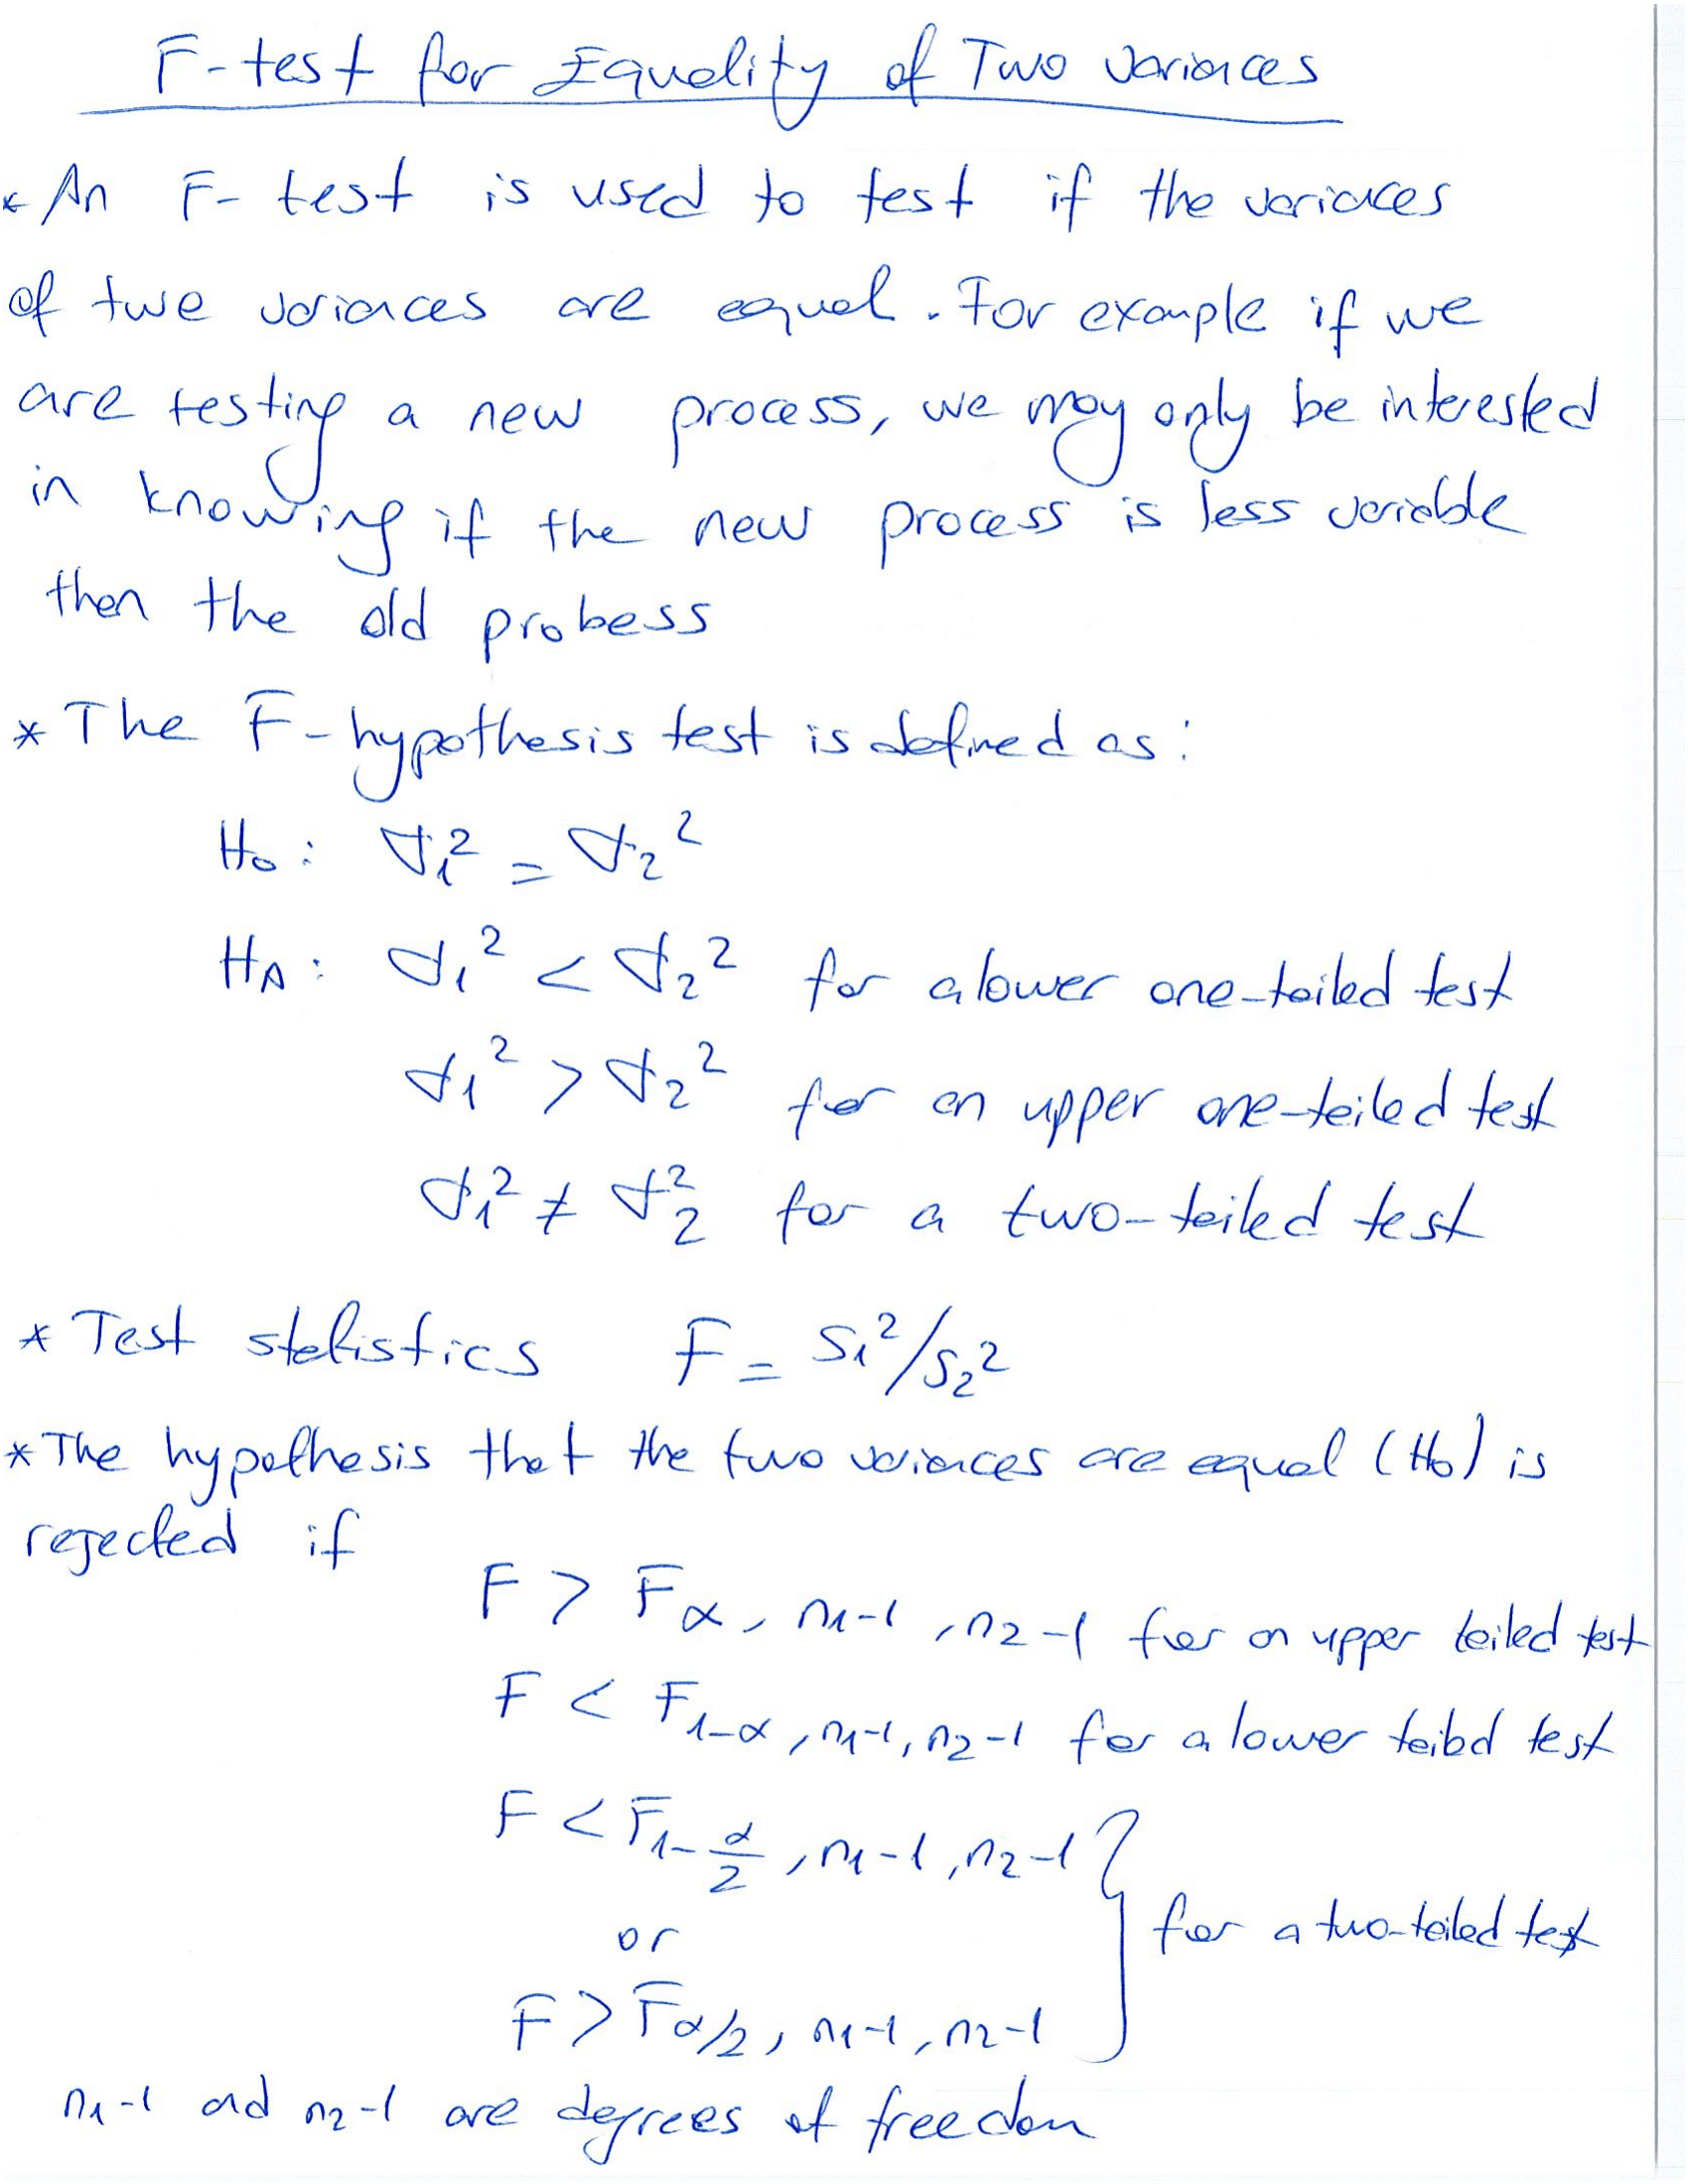 F-test for Equality of Two Variances
* An F-test is used to test if the variances
of two variances are equal. For example if we
are testing a new process, we may only be interested
in knowing if the new process is less variable
then the old probess
* The F-hypothesis test is defined as:
H₀: σ₁² = σ₂²
H_A: σ₁² < σ₂² for a lower one-tailed test
σ₁² > σ₂² for an upper one-tailed test
σ₁² ≠ σ₂² for a two-tailed test
* Test statistics F = S₁²/S₂²
* The hypothesis that the two variances are equal (H₀) is
rejected if
F > F α, n₁-1, n₂-1 for an upper tailed test
F < F 1-α, n₁-1, n₂-1 for a lower tailed test
F < F 1-α/2, n₁-1, n₂-1
or
for a two-tailed test
F > F α/2, n₁-1, n₂-1
n₁-1 and n₂-1 are degrees of freedom